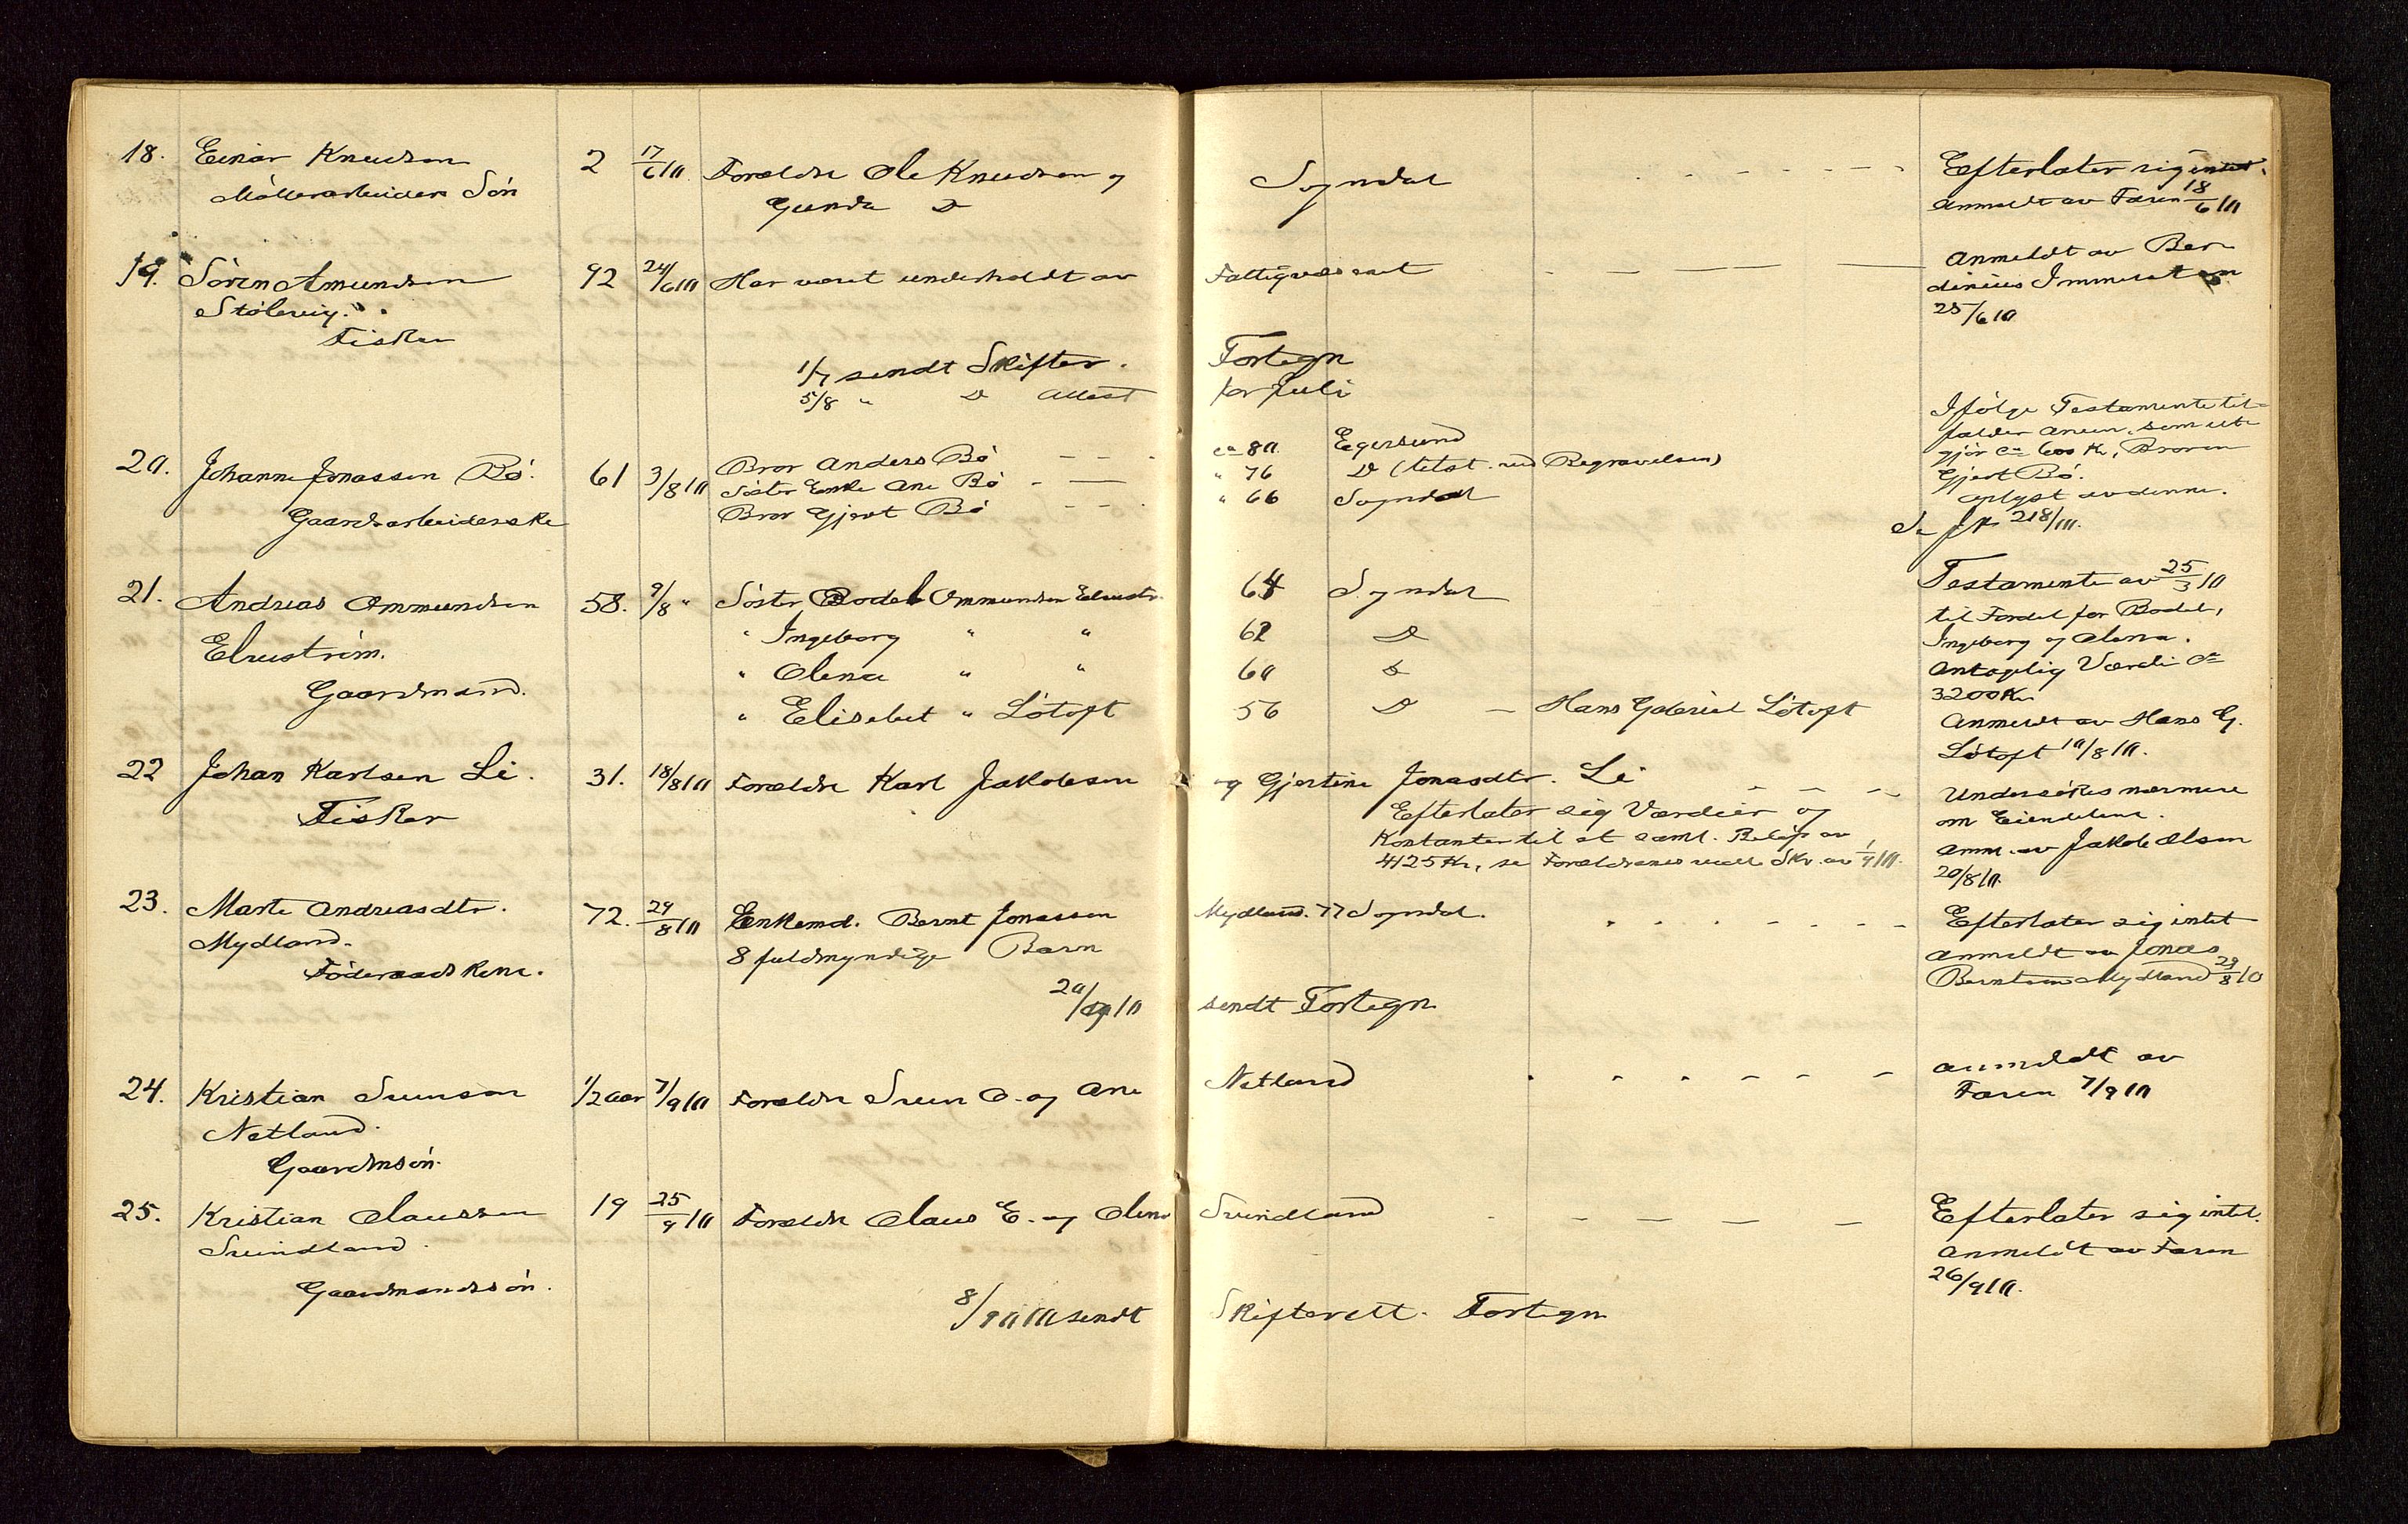 18. Einar Knudsen 2 17/6 10 Forældre Ole Knudsen og Sogndal - - - - - - Efterlater sig intet.
Møllerarbeiders Søn Gunda Do Anmeldt av Faren 18/6 10
19. Søren Amundsen 92 24/6 10 Har været underholdt av Fattigvæsenet - - - - Anmeldt av Ber
Stølevig. dinius Immerstein
Fisker 25/6 10
1/7 sendt Skifter. Fortegn
5/8 " Do Attest for Juli
Ifølge Testamente til-
falder Arven, som ut-
20. Johanne Jonassen Bø. 61 3/8 10 Bror Anders Bø - - - ca 80 Egersund gjør ca 600 Kr, Broren
Søster Enke Ane Bø - - " 76 Do (tilst. ved Begravelsen) Gjert Bø.
Gaardsarbeiderske Bror Gjert Bø - - " 66 Sogndal Oplyst av denne.
Se JN 218/10.
21. Andreas Ommundsen 58. 9/8 " Søster Bodel Ommundsen Elvestr. 64 Sogndal Testamente av 25/3 10
Elvestrøm. " Ingeborg " " 62 Do til Fordel for Bodel,
Ingeborg og Olena.
Gaardmand. " Olena " " 60 Do Antagelig Værdi ca
3200 Kr
" Elisabet " Løtoft 56 Do - Hans Gabriel Løtoft Anmeldt av Hans G.
Løtoft 10/8 10.
22 Johan Karlsen Li. 31. 18/8 10 Forældre Karl Jakobsen og Gjertine Jonasdtr. Li - - - Undersøkes nærmere
Fisker Efterlater sig Værdier og om Eiendelene.
Kontanter til et saml. Beløp av Anm. av Jakob Olsen
4125 Kr, se Forældrenes Skr. av 1/9 10. 20/8 10.
23. Marte Andreasdtr. 72. 29/8 10 Enkemd. Bernt Jonassen Mydland. 77 Sogndal. - - - - - - Efterlater sig intet
Mydland. 8 fuldmyndige Barn Anmeldt av Jonas
Føderaadskone. Berntsen Mydland 29/8 10
20/9 10 sendt Fortegn
24. Kristian Svensen 1/2 aar 7/9 10 Forældre Sven O. og Ane Netland - - - - - - Anmeldt av
Netland. Faren 7/9 10
Gaardmsøn.
25. Kristian Olaussen 19 25/9 10 Forældre Olaus E. og Olena Svindland - - - - - Efterlater sig intet.
Svindland. Anmeldt av Faren
Gaardmandssøn. 26/9 10.
8/10 10 sendt Skifterett. Fortegn